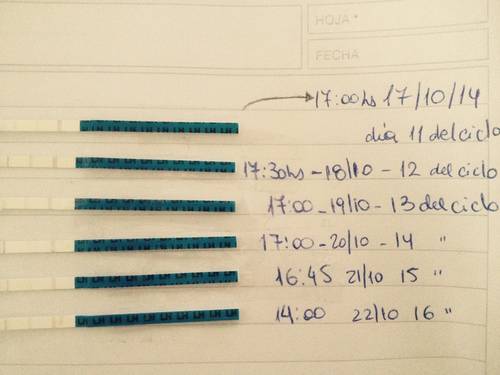 HOJA*
FECHA
17:00hs 17/10/14
día 11 del ciclo
17:30hs - 18/10 - 12 del ciclo
17:00 - 19/10 - 13 del ciclo
17:00 - 20/10 - 14 "
16:45 21/10 15 "
14:00 22/10 16 "